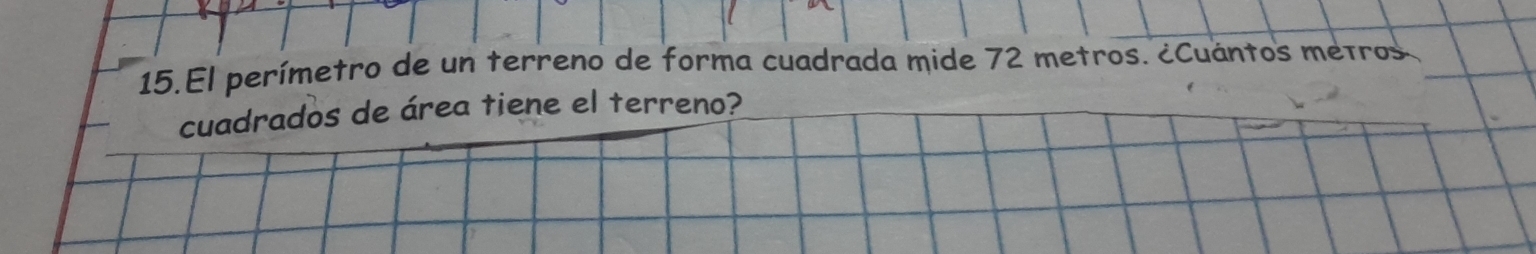 15. El perímetro de un terreno de forma cuadrada mide 72 metros. ¿Cuántos metros
cuadrados de área tiene el terreno?